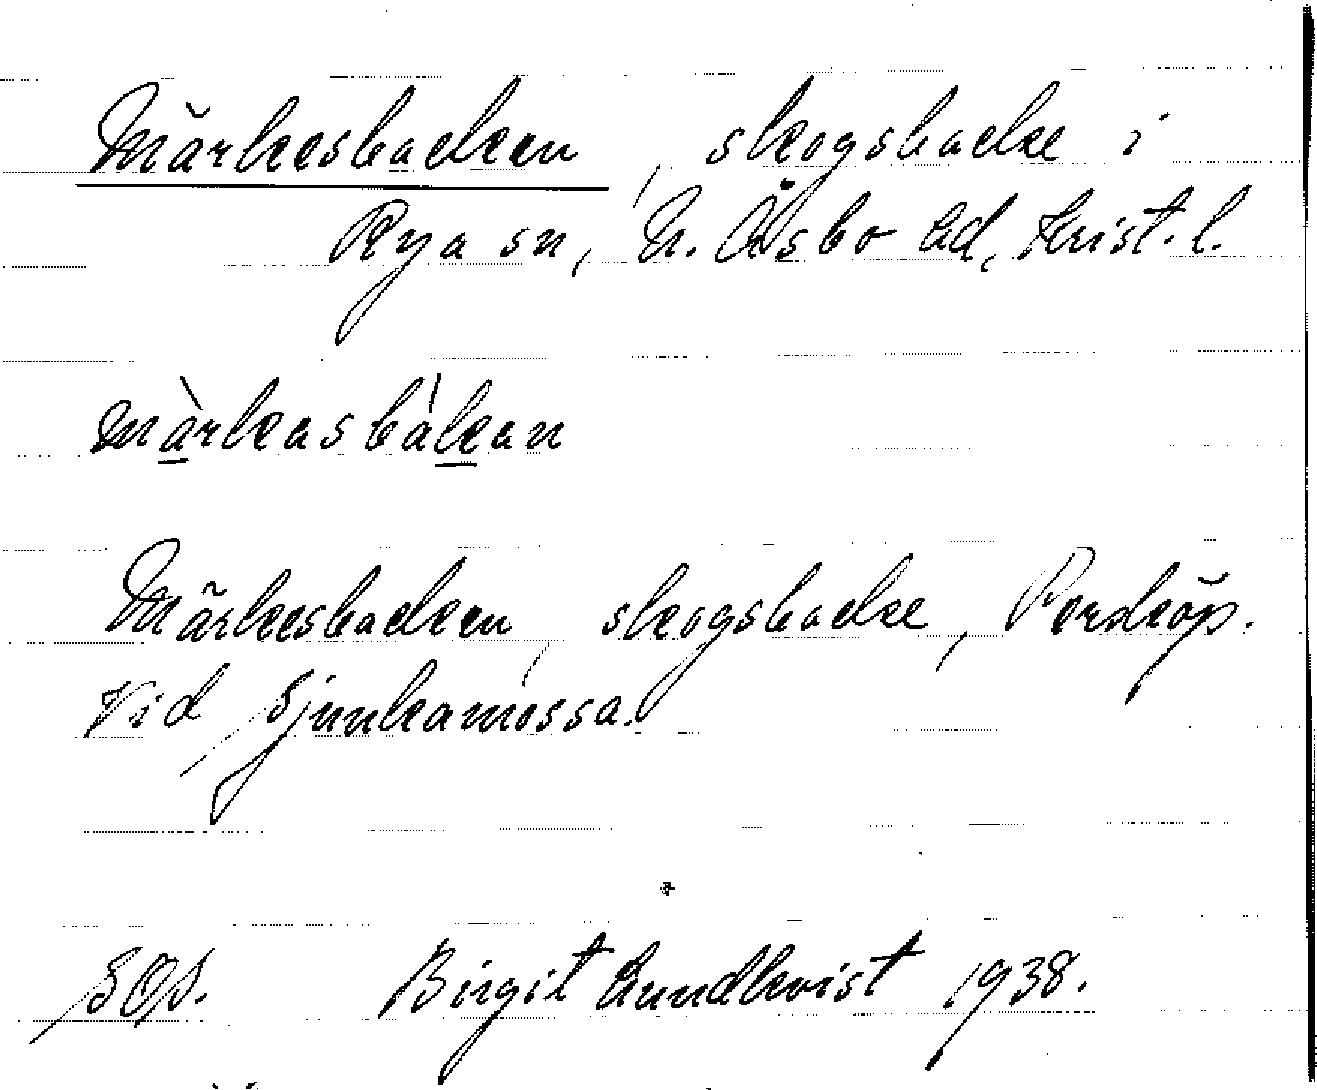 Märkesbacken, skogsbacke i
Rya sn, N. Åsbo hd, Krist. l.
màrkasbàkan
Märkesbacken, skogsbacke, Perdköp.
Vid Sjunkamossa.
SOA. Birgit Lundkvist 1938.